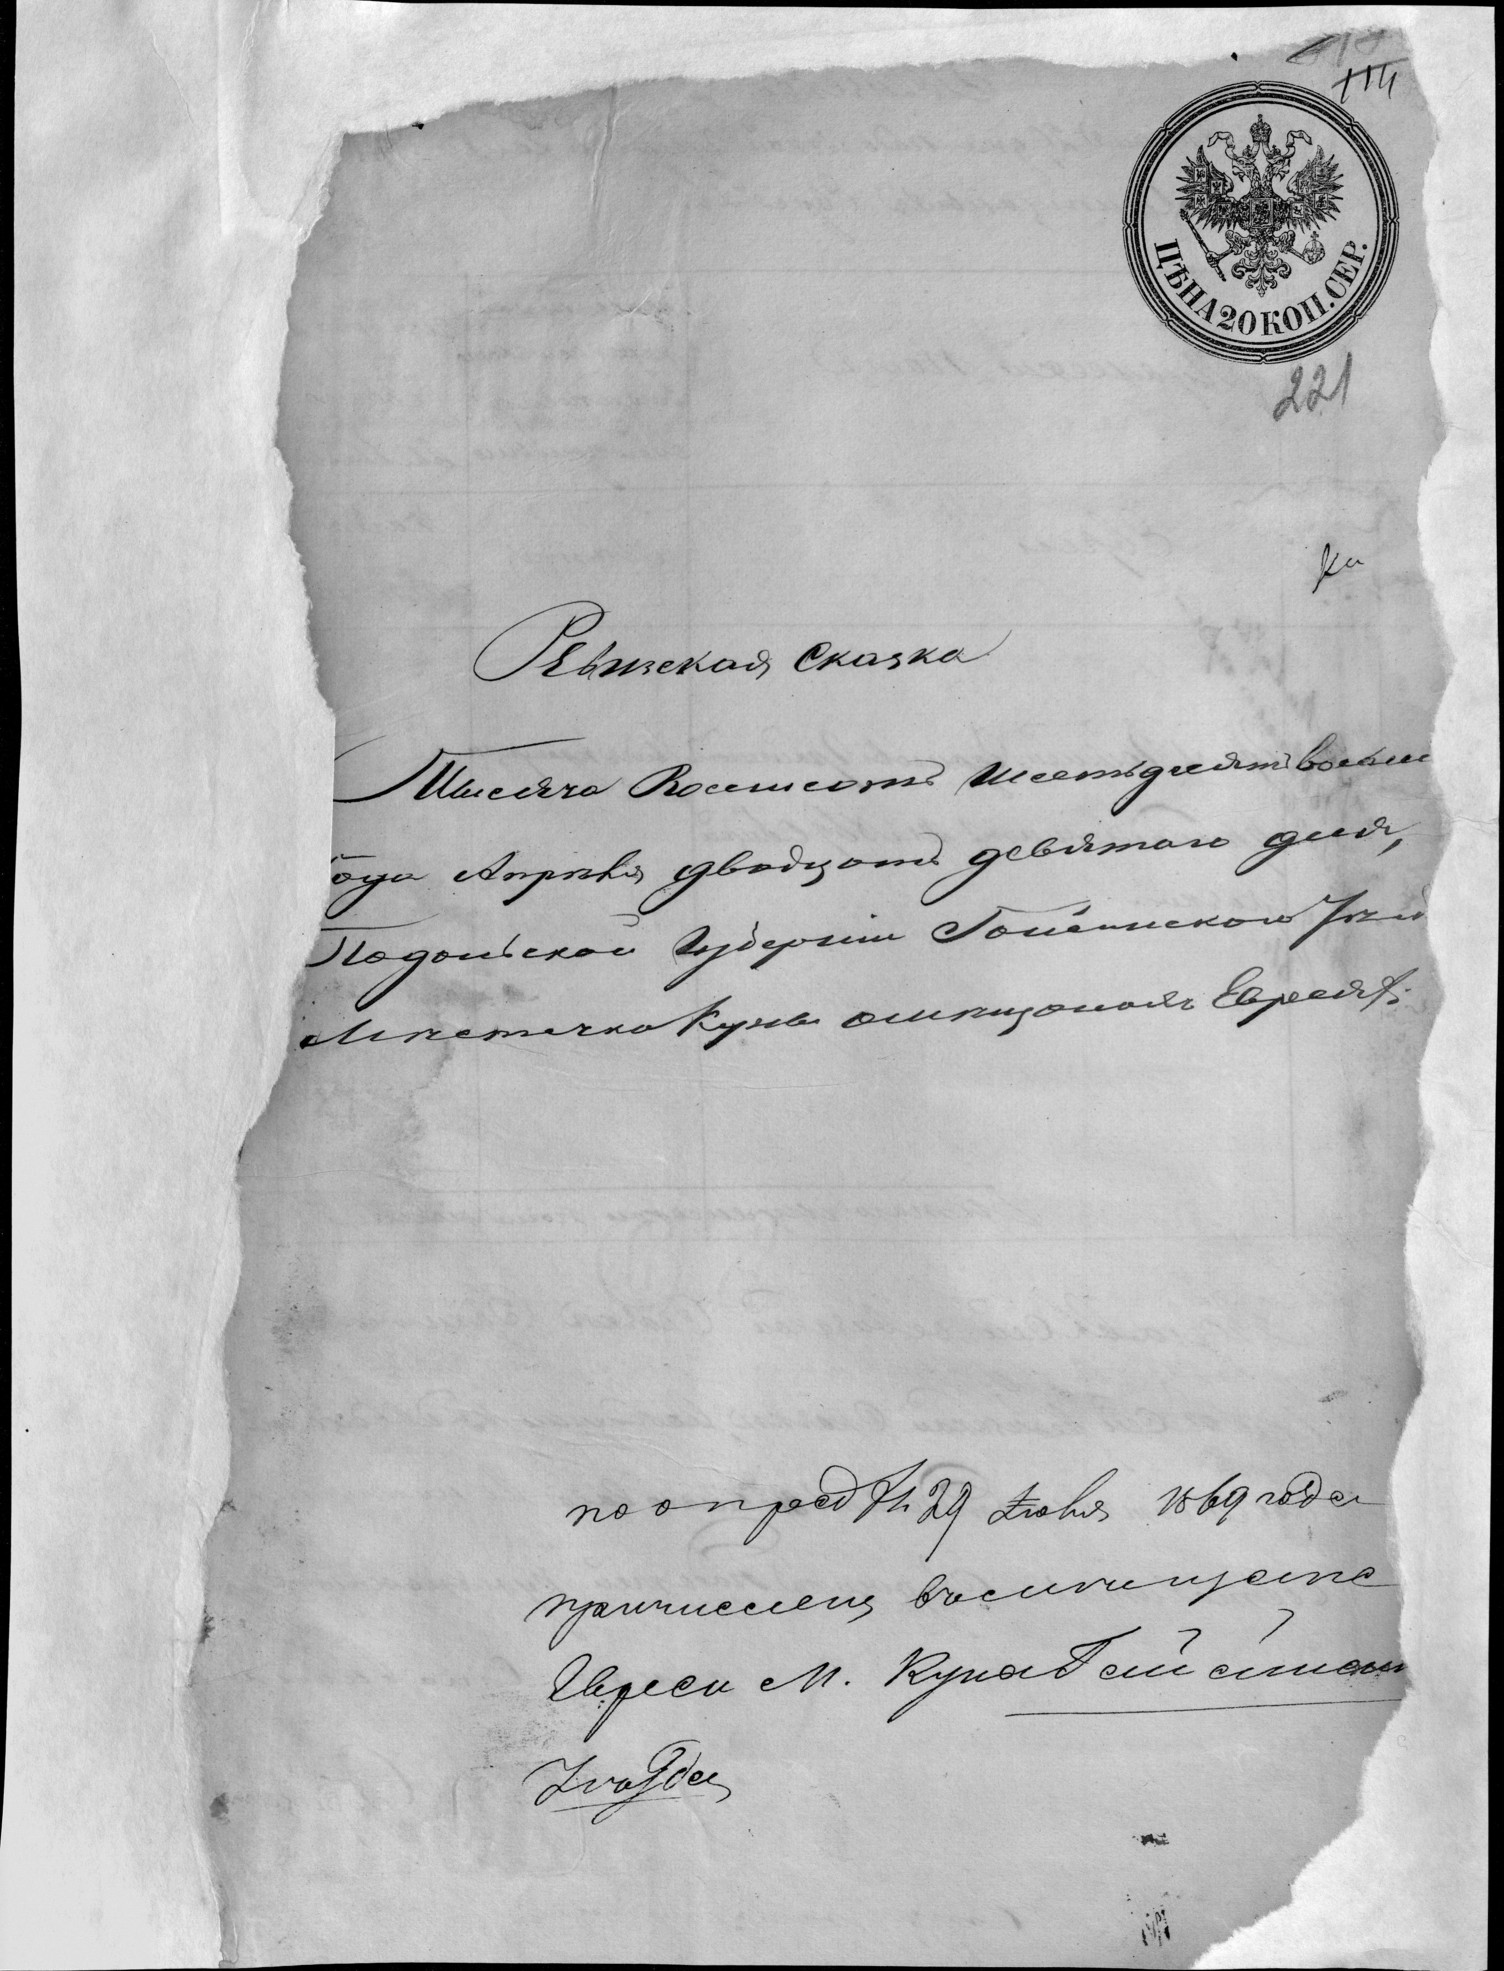 114
ЦѢНА 20 КОП. СЕР.
221
Ревизская Сказка
Тысяча Восемсотъ шестьдесятъ восьм
года Апрѣля двадцать девятаго дня,
Подольской Губерніи Гайсинского Уѣзд
Мѣстечка Куны о мѣщанахъ Евреяхъ:
по опред 29 Іюля 1869 года
причислены въ мѣщане
Евреи м. Куна Гайсинск
Уѣзда